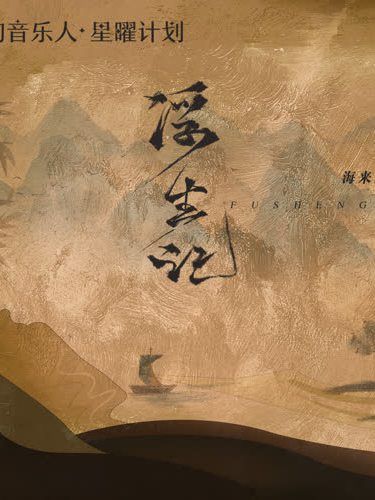 音乐人·星曜计划
浮生记
海来
FUSHENG